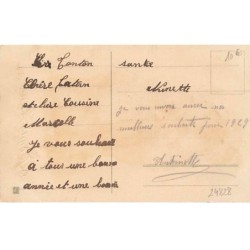 Cher Tonton
Chère Tatan
et chère Cousine
Marcelle
Je vous souhaite
à tous une bonne
année et une bonne
santée
Ninette
Je vous envoie aussi mes
meilleurs souhaits pour 1929
Antoinette
24828